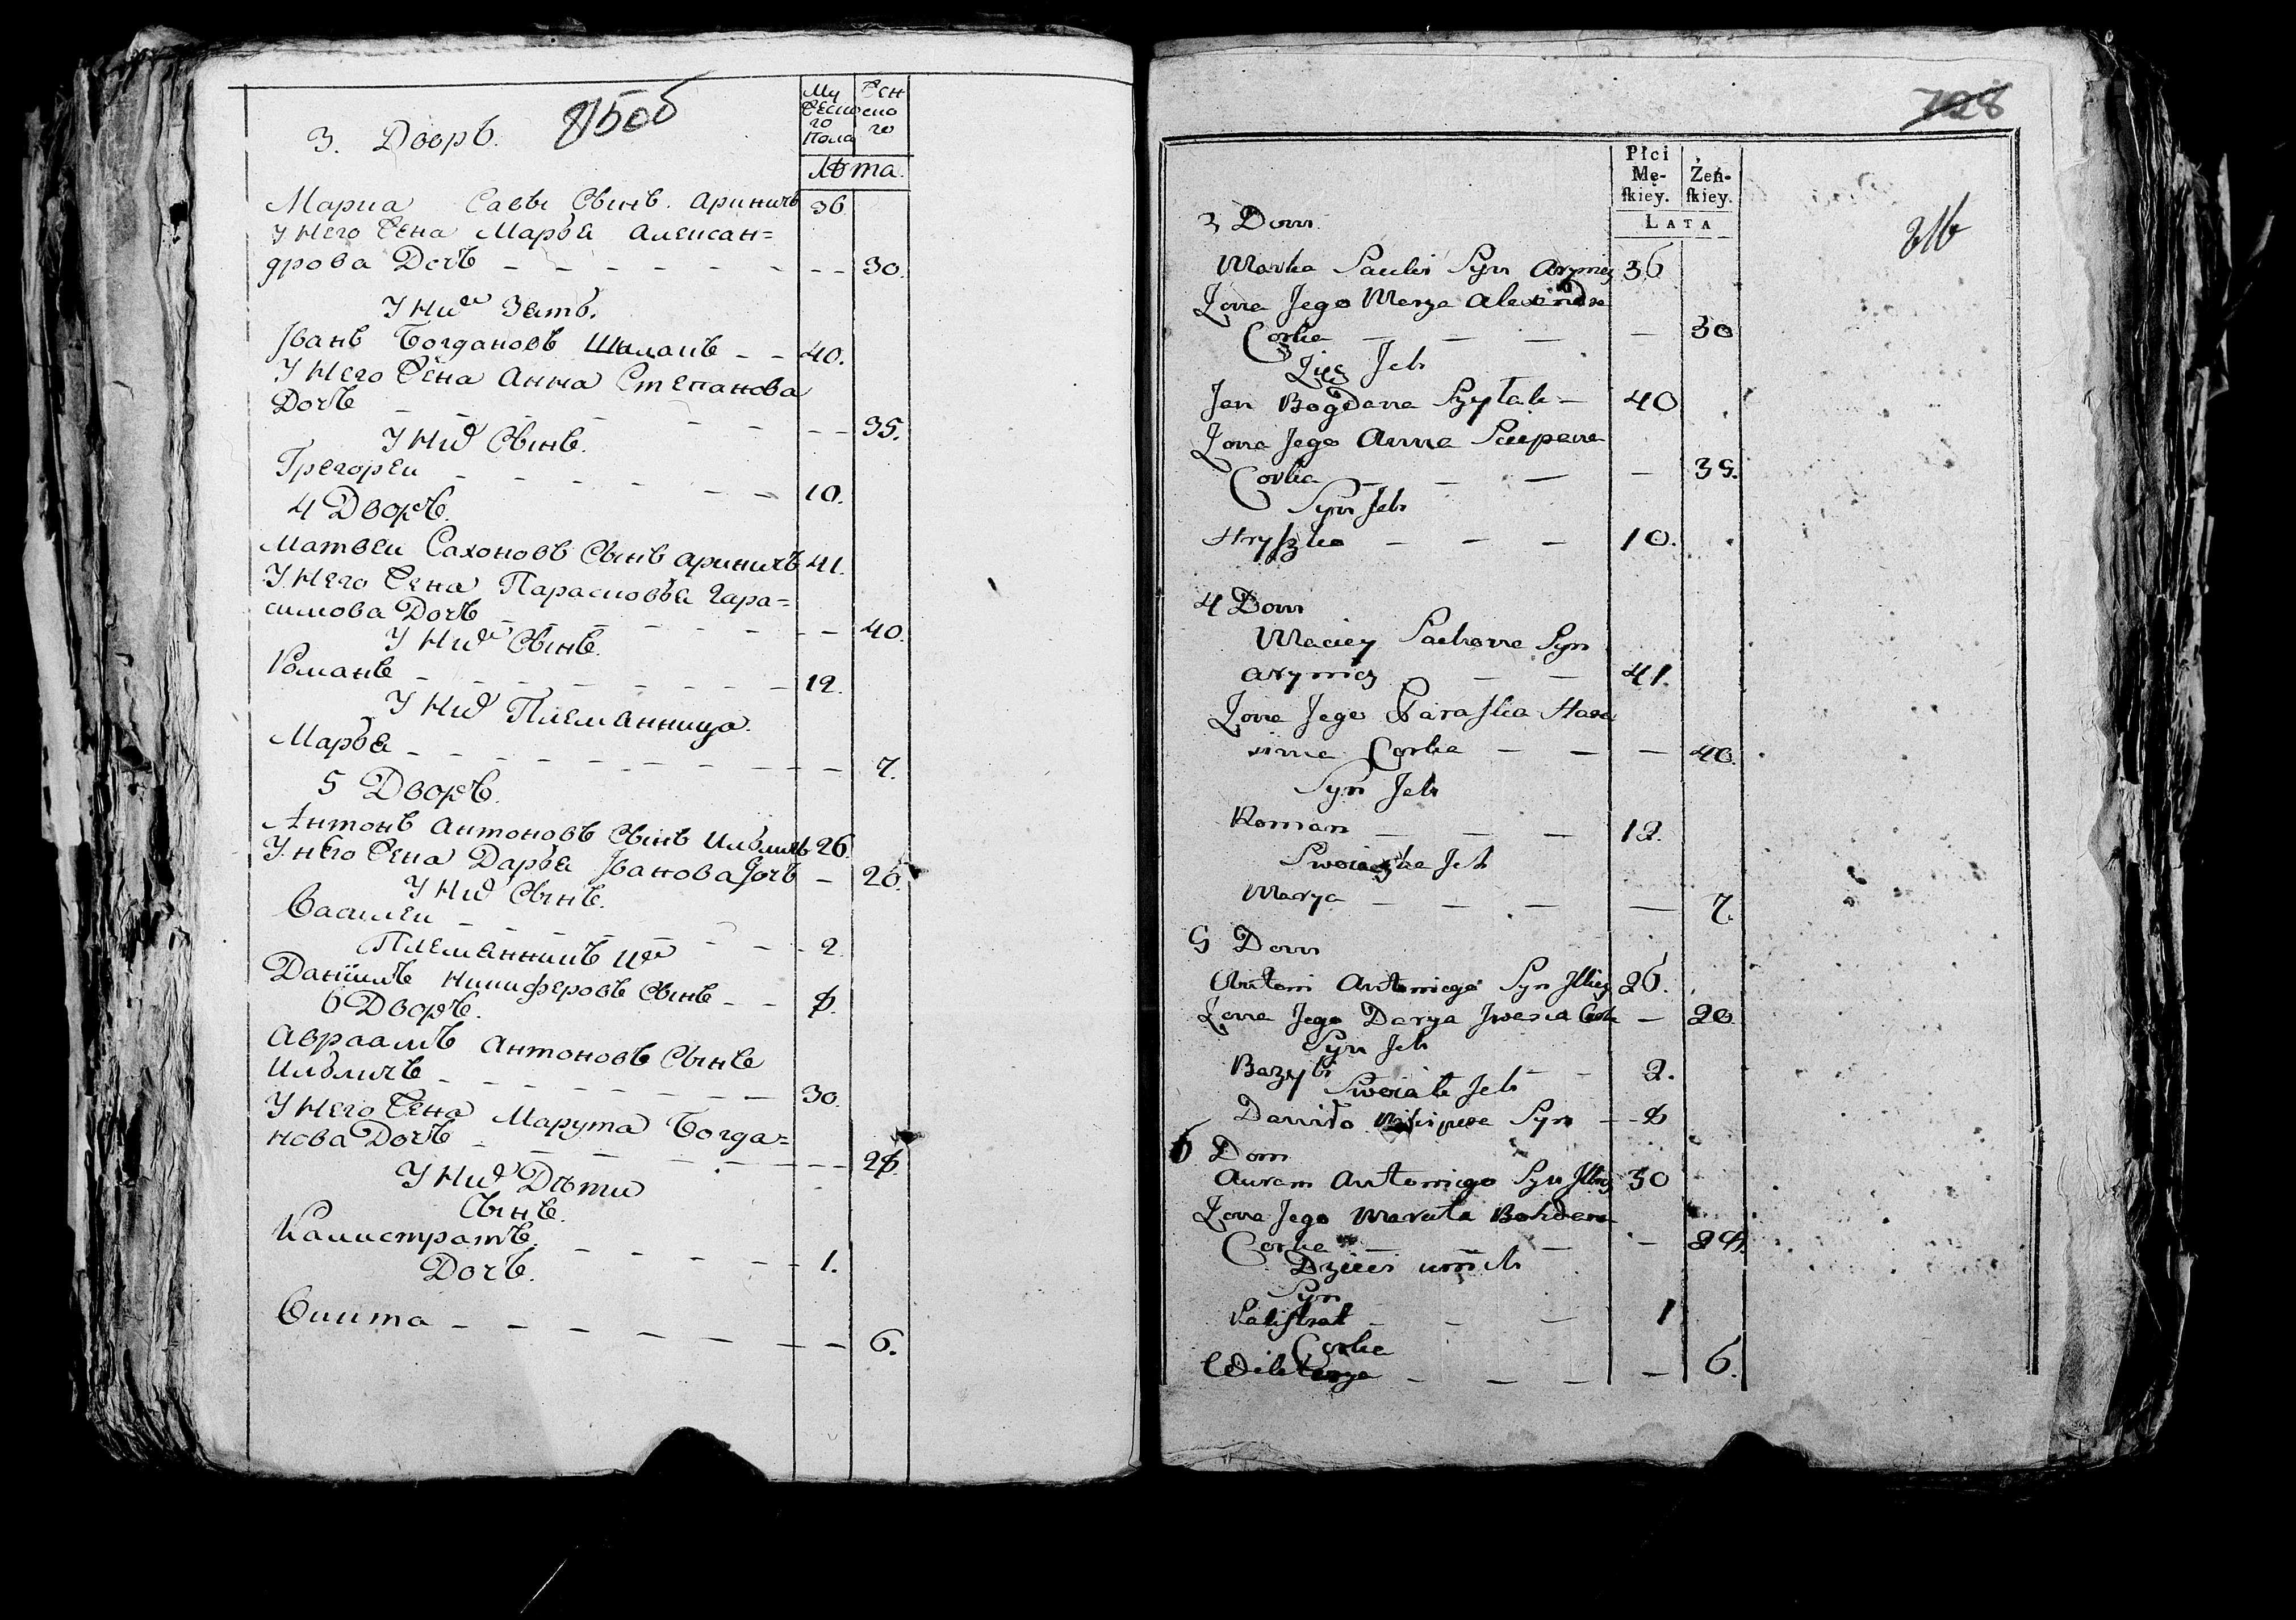 815об
Му
жеско
го
Пола
Жен
ско
го
Лѣта.
3. Дворъ.
Марка Савы Сынъ. Ариничъ 36
У Него Жена Марья Алексан=
дрова Дочь - - - - - - - - 30.
У Них Зять.
Іванъ Богдановъ - - 40.
У Него Жена Анна Степанова
Дочь - - - - - - - 35.
У Них Сынъ.
Грегореи - - - - - - - 10.
4 Дворъ.
Матвеи Сахоновъ Сынъ Ариничъ 41.
У Него Жена Парасковья Гара=
симова Дочь - - - - - - - 40.
У Них Сынъ.
Романъ - - - - - - - 12.
У Них Племянница.
Марья - - - - - - - - - 7.
5 Дворъ.
Антонъ Антоновъ Сынъ Ильичъ 26.
У него Жена Дарья Іванова Дочь - 20.
У Них Сынъ.
Василеи - - - - - - 2.
Племянникъ Их
Даніилъ Никифоровъ Сынъ - - 8.
6 Дворъ.
Авраамъ Антоновъ Сынъ
- - - - - - - 30.
У Него Жена Марута Богда=
нова Дочь - - - - - - - 28.
У Них Дѣти
Сынъ.
Калистратъ. - - - - - 1.
Дочь.
Викта - - - - - - - - 6.
728
816
Płci
Mę-
ſkiey.
Żeń-
ſkiey.
LATA
3 Dom
Marko Sawki Syn Arynicz 36
Żona Jego Marya Alexandra
Corka - - - - 30
Zięć Ich
Jan Bogdana Szyłak - 40
Żona Jego Anna Sciepana
Corka - - - - 35.
Syn Ich
Hryſzko - - - 10.
4 Dom
Maciey Sachona Syn
Arynicz - - 41.
Żona Jego Paraſka Hara
sima Corka - - - 40.
Syn Ich
Roman - - - 12.
Swoiaczka Ich
Marya - - - - 7.
5 Dom
Antoni Antoniego Syn Illicz 26.
Żona Jego Darya Jwana Corka - 20.
Syn Ich
Bazyli - - 2.
Swoiak Ich
Daniło Syn - - 8
6 Dom
Auram Antoniego Syn Illicz 30
Żona Jego Maruta Bohdana
Corka - - - - 28.
Dzieci u nich
Syn
Kaliſtrat - - - 1
Corka
Wiktorya - - - - 6.